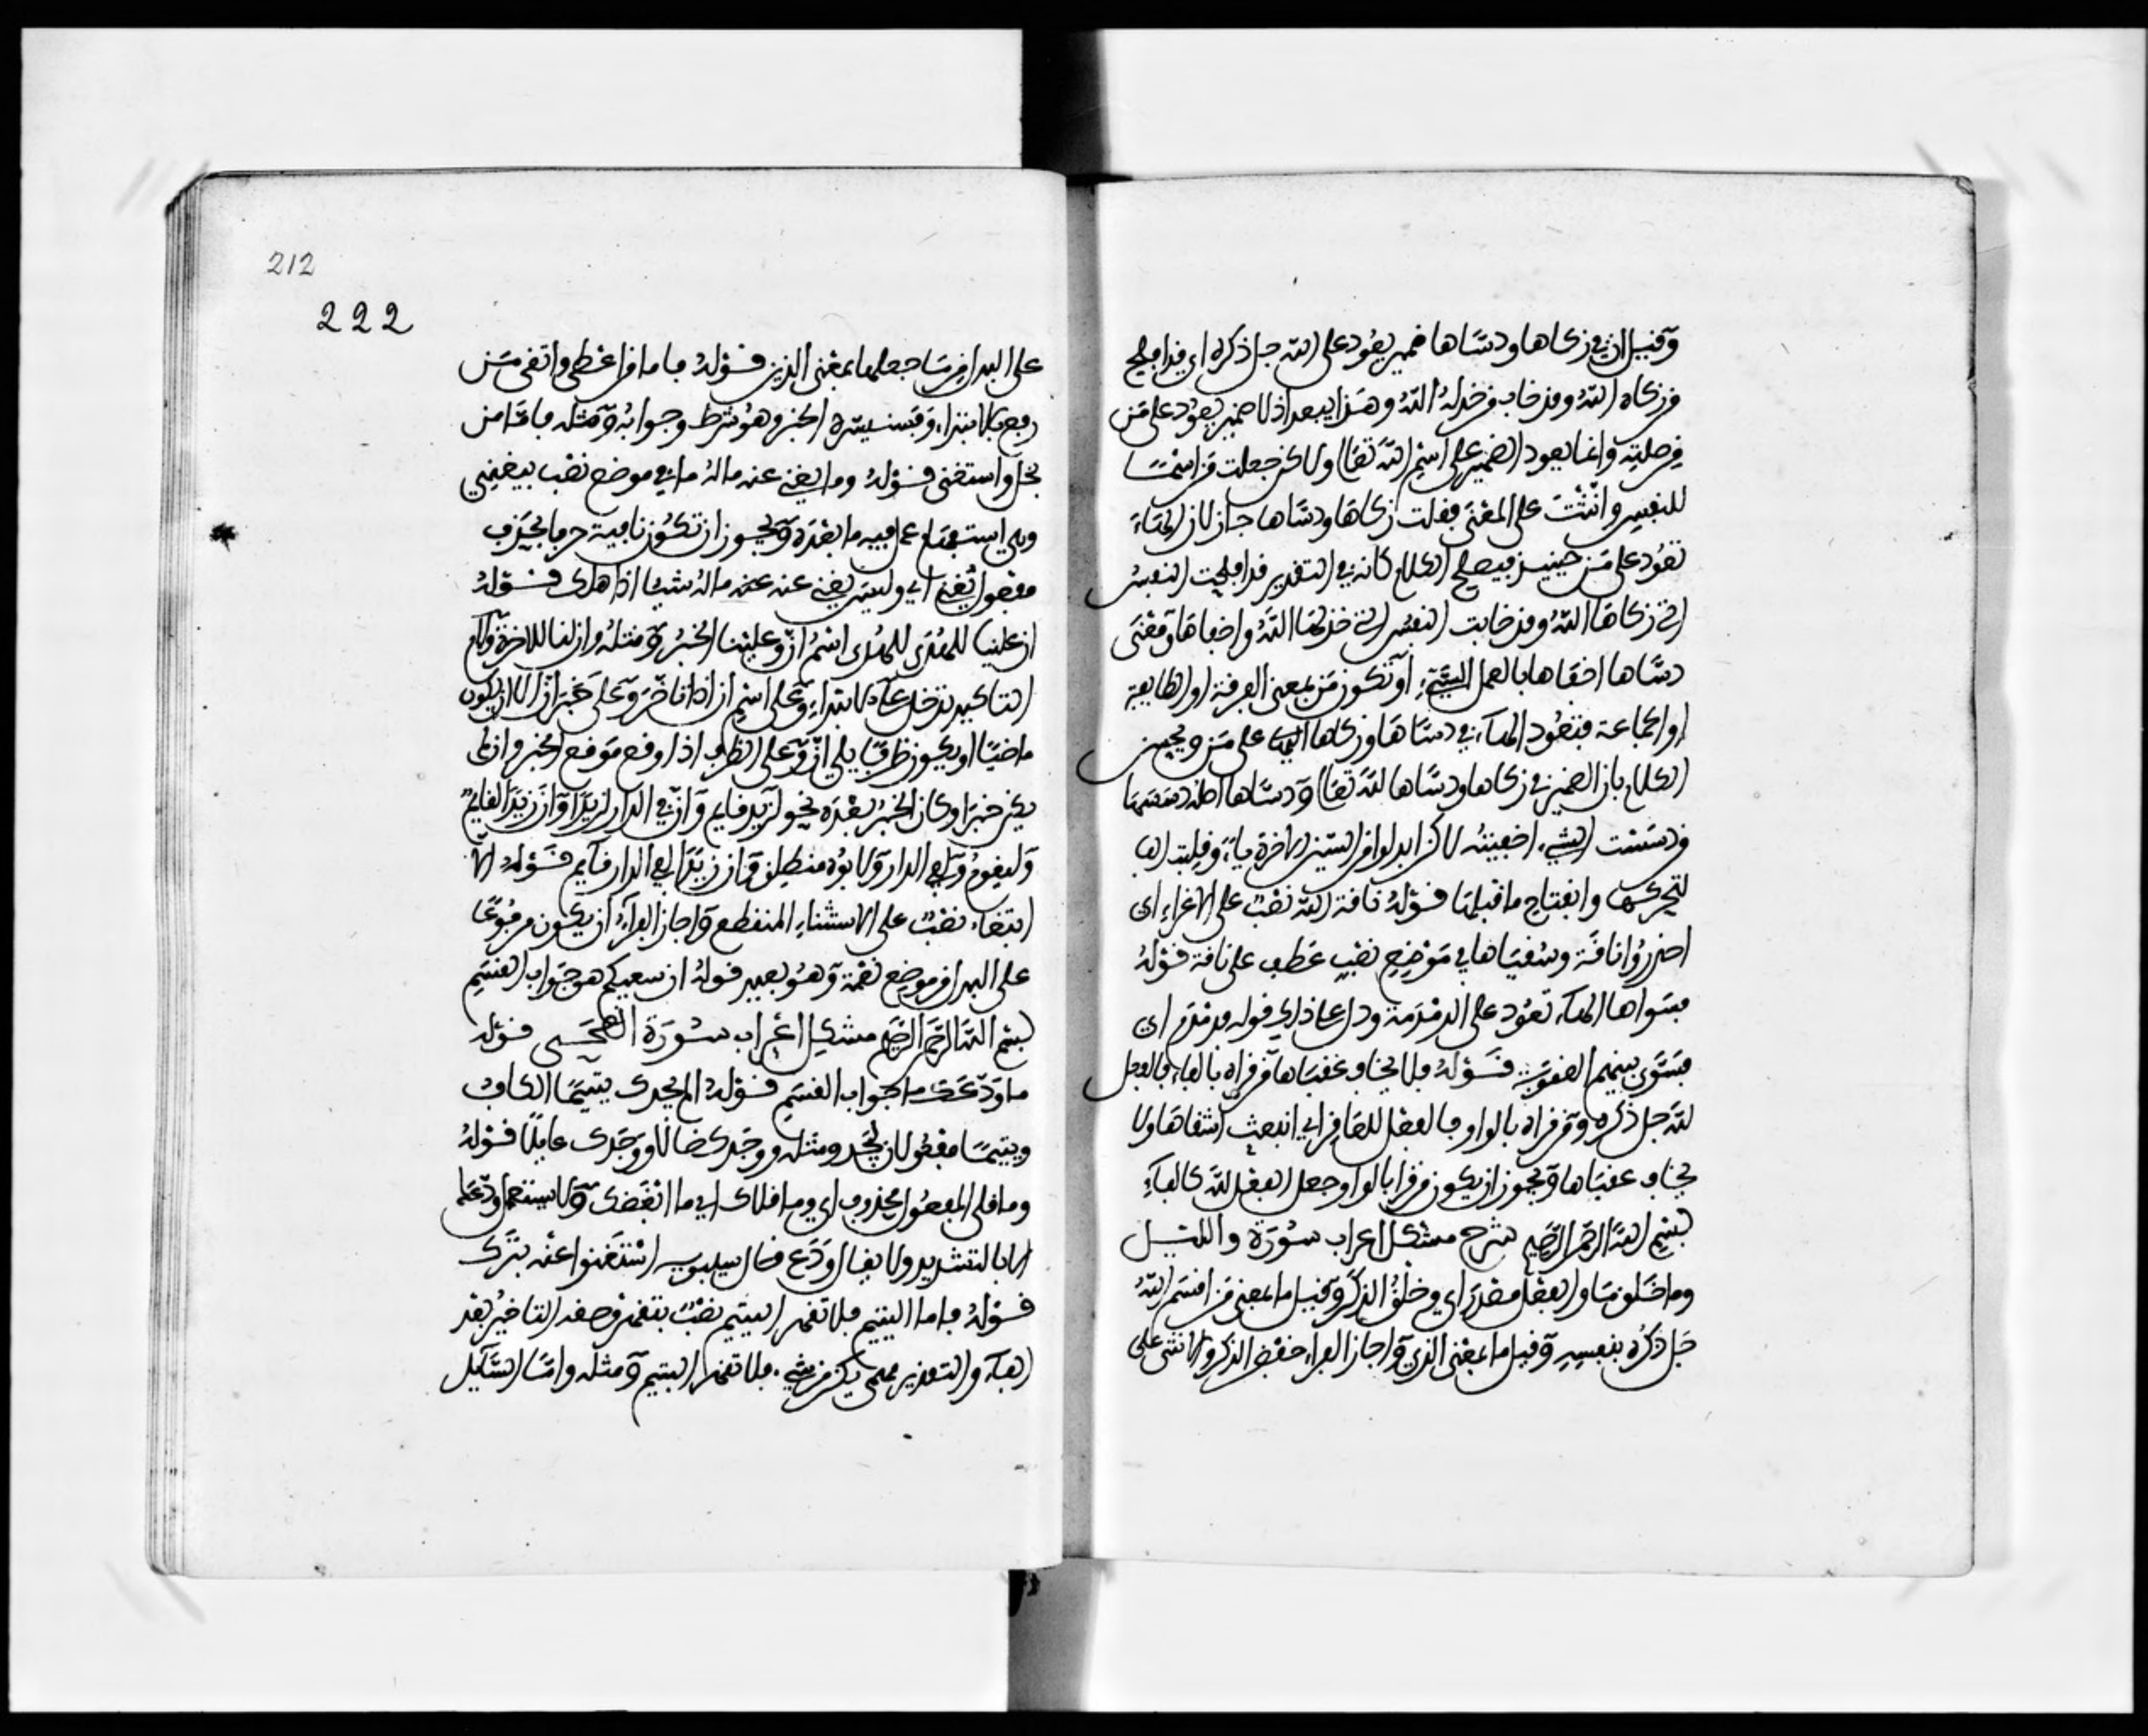 وقيل ان في زكاها ودساها ضمير يعود على الله جل ذكره اي قد افلح
من زكاه الله وقد خاب من خذله الله وهذا يبعد اذ لا ضمير يعود على من
من صلته وانما يعود الضمير على اسم الله تعالى ولاكن جعلت من اسما
للنفس وانثت على المعنى فقلت زكاها ودساها جاز لان الهاء
تعود على من حينيذ فيصلح الكلام كانه في التقدير قد افلحت النفس
التي زكاها الله وقد خابت النفس التي خذلها الله واخفاها ومعنى
دساها اخفاها بالعمل السيء او تكون من بمعنى الفرقة او الطايفة
او الجماعة فتعود الهاء في دساها وزكاها على من ويحسن
الكلام بان الضمير في زكاها ودساها لله تعالى ودساها اصله دسسها
من دسست الشيء اخفيته لاكن ابدلوا من السين الاخرة ياء وقلبت الفا
لتحركها وانفتاح ما قبلها قوله ناقة الله نصب على الاغراء اي
احذروا ناقة وسقياها في موضع نصب عطف على ناقة قوله
فسواها الهاء تعود على الدمدمة ودل على ذلك قوله فدمدم اي
فسوى بينهم العقوبة قوله فلا يخاف عقباها من قراه بالفاء فالفعل
لله جل ذكره ومن قراه بالواو فالفعل للعاقر اي انبعث اشقاها ولا
يخاف عقباها ويجوز ان يكون من قرا بالواو جعل الفعل لله كالفاء
بسم الله الرحمن الرحيم شرح مشكل اعراب سورة والليل
وما خلق ما والفعل مصدر اي وخلق الذكر وقيل ما بمعنى من اقسم الله
جل ذكره بنفسه وقيل ما بمعنى الذي واجاز الفراء خفض الذكر والانثى على
212
222
على البدل من ما جعلها بمعنى الذي قوله فاما من اعطى واتقى من
رفع بالابتداء وفسنيسره الخبر وهو شرط وجوابه ومثله فاما من
بخل واستغنى قوله وما يغني عنه ماله ما في موضع نصب بيغني
وهي استفهام عمل فيه ما بعده ويجوز ان تكون نافية حرفا يحذف
مفعول يغني اي وليس يغني عنه ماله شيا اذا هلك قوله
ان علينا للهدى للهدى اسم ان وعلينا الخبر ومثله وان لنا للاخرة ولام
التاكيد تدخل على الابتداء وعلى اسم ان اذا تاخر وعلى خبر ان الا ان يكون
ماضيا او يكون ظرفا يلي ان وعلى الظرف اذا وقع موقع الخبر وان لم
يكن خبرا وكان الخبر بعده نحو لزيد قايم وان في الدار لزيدا وان زيدا لقايم
وليقوم ولفي الدار ولابوه منطلق وان زيدا لفي الدار قايم قوله الا
ابتغاء نصب على الاستثناء المنقطع واجاز الفراء ان يكون مرفوعا
على البدل من موضع نعمة وهو بعيد قوله ان سعيكم هو جواب القسم
بسم الله الرحمن الرحيم مشكل اعراب سورة الضحى قوله
ما ودعك ما جواب القسم قوله الم يجدك يتيما الكاف
ويتيما مفعولان ليجد ومثله ووجدك ضالا ووجدك عايلا قوله
وما قلى المفعول محذوف اي وما قلاك اي ما ابغضك ولا يستعمل ودعك
الا بالتشديد ولا يقال ودع قال سيبويه استغنوا عنه بترك
قوله فاما اليتيم فلا تقهر اليتيم نصب بتقهر وحقه التاخير بعد
الفاء والتقدير مهما يكن من شيء فلا تقهر اليتيم ومثله واما السايل